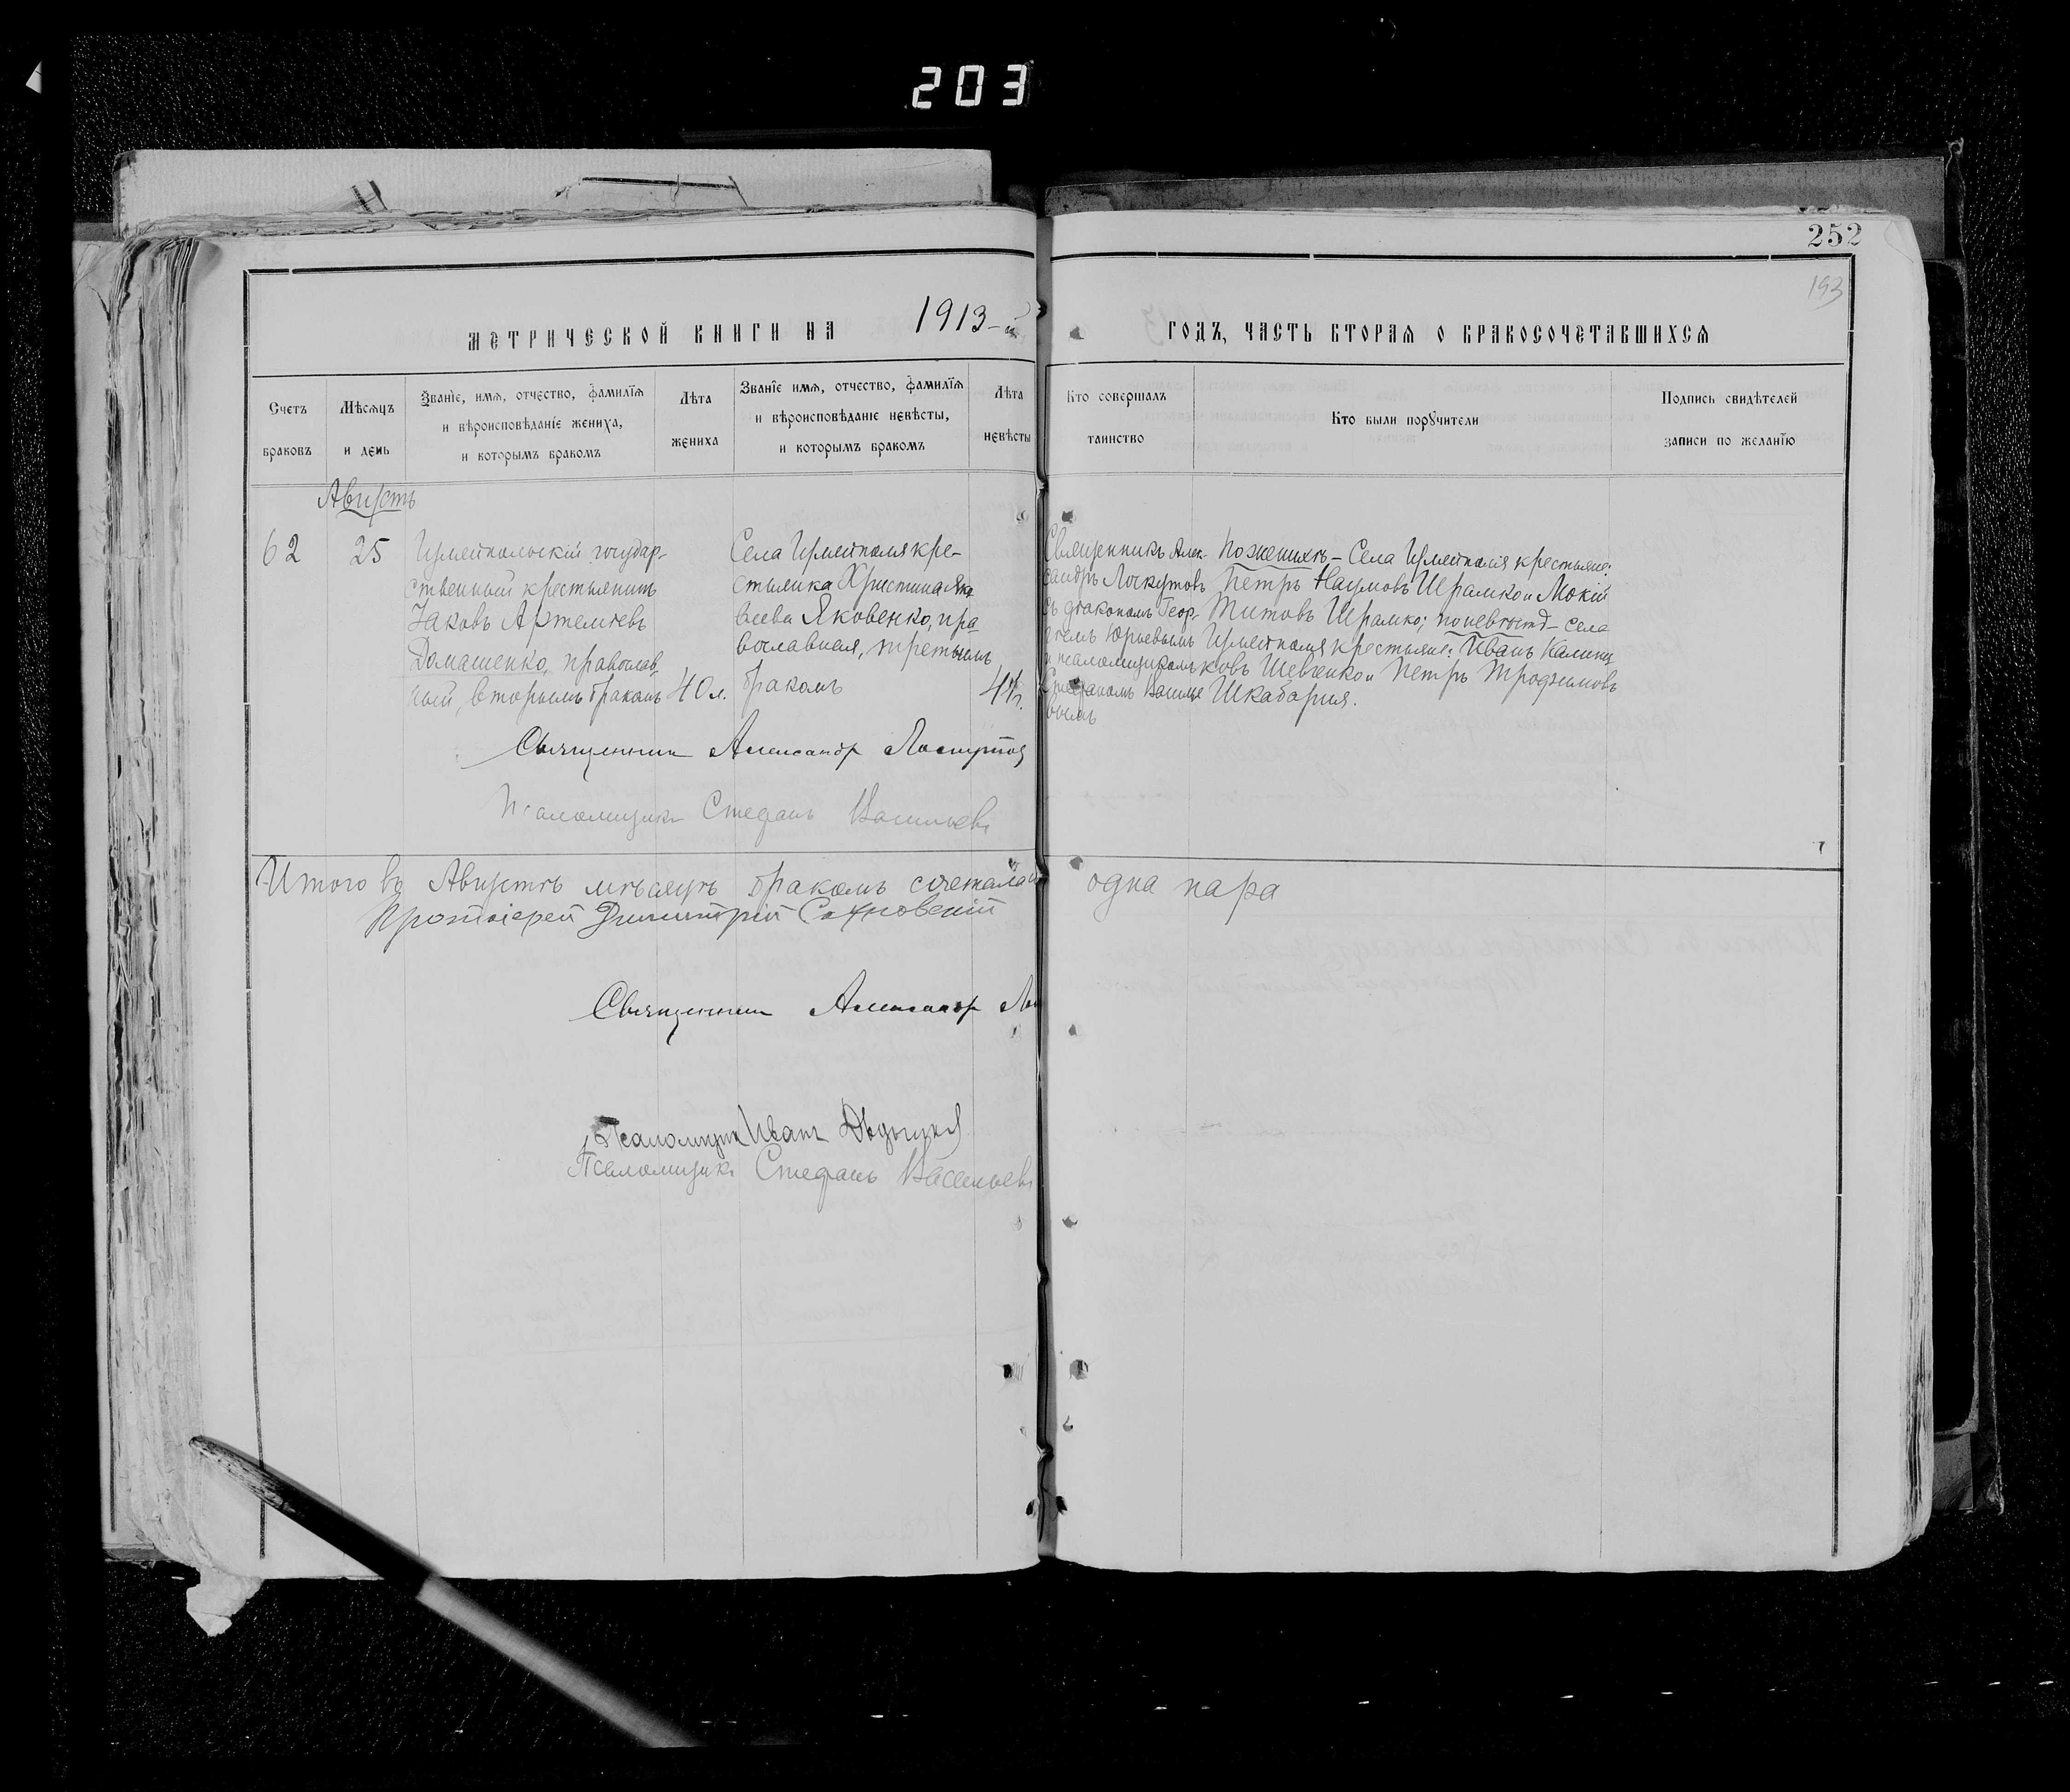 203
252
193
МЕТРИЧЕСКОЙ КНИГИ НА 1913-й ГОДЪ, ЧАСТЬ ВТОРАЯ О БРАКОСОЧЕТАВШИХСЯ
Счетъ браковъ
Мѣсяцъ и день
Званїе, имя, отчество, фамилїя и вѣроисповѣданїе жениха, и которымъ бракомъ
Лѣта жениха
Званїе имя, отчество, фамилїя и вѣроисповѣданїе невѣсты, и которымъ бракомъ
Лѣта невѣсты
Кто совершалъ таинство
Кто были поручители
Подпись свидѣтелей записи по желанїю
Августъ
62
25
государ-
ственный крестьянинъ
Іаковъ Артеміевъ
Домашенко, православ-
ный, вторымъ бракомъ
40 л.
Села кре-
стьянка Христина Яко
влева Яковенко, пра
вославная, третьимъ
бракомъ
Священникъ Алек-
сандръ Лоскутовъ
съ діакономъ Геор-
гіемъ Юрьевымъ
и псаломщикомъ
Стефаномъ Василье
вымъ
По женихѣ – Села крестьяне:
Петръ Наумовъ Шрамко и Мокій
Титовъ Шрамко; по невѣстѣ – села
крестьяне: Иванъ Калини
ковъ Шевченко и Петръ Трофимовъ
Шкабарня.
Священникъ Александр Лоскутов
Псаломщикъ Стефанъ Васильевъ
Итого въ Августѣ мѣсяцѣ бракомъ сочетала одна пара
Протоіерей Димитрій Сахновскій
Священникъ Александр
Псаломщик Иван
Псаломщикъ Стефанъ Васильевъ